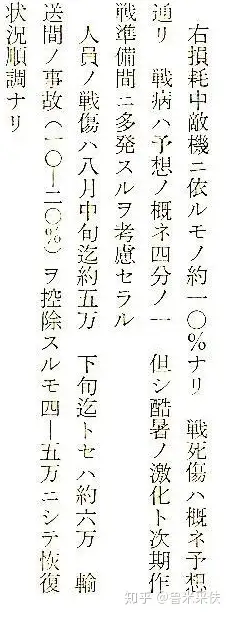 右損耗中敵機ニ依ルモノ約一〇％ナリ　戦死傷ハ概ネ予想
通リ　戦病ハ予想ノ概ネ四分ノ一　但シ酷暑ノ激化ト次期作
戦準備間ニ多発スルヲ考慮セラル
人員ノ戦傷ハ八月中旬迄約五万　下旬迄トセハ約六万　輸
送間ノ事故（一〇―二〇％）ヲ控除スルモ四―五万ニシテ恢復
状況順調ナリ
知乎 @鲁米来伕